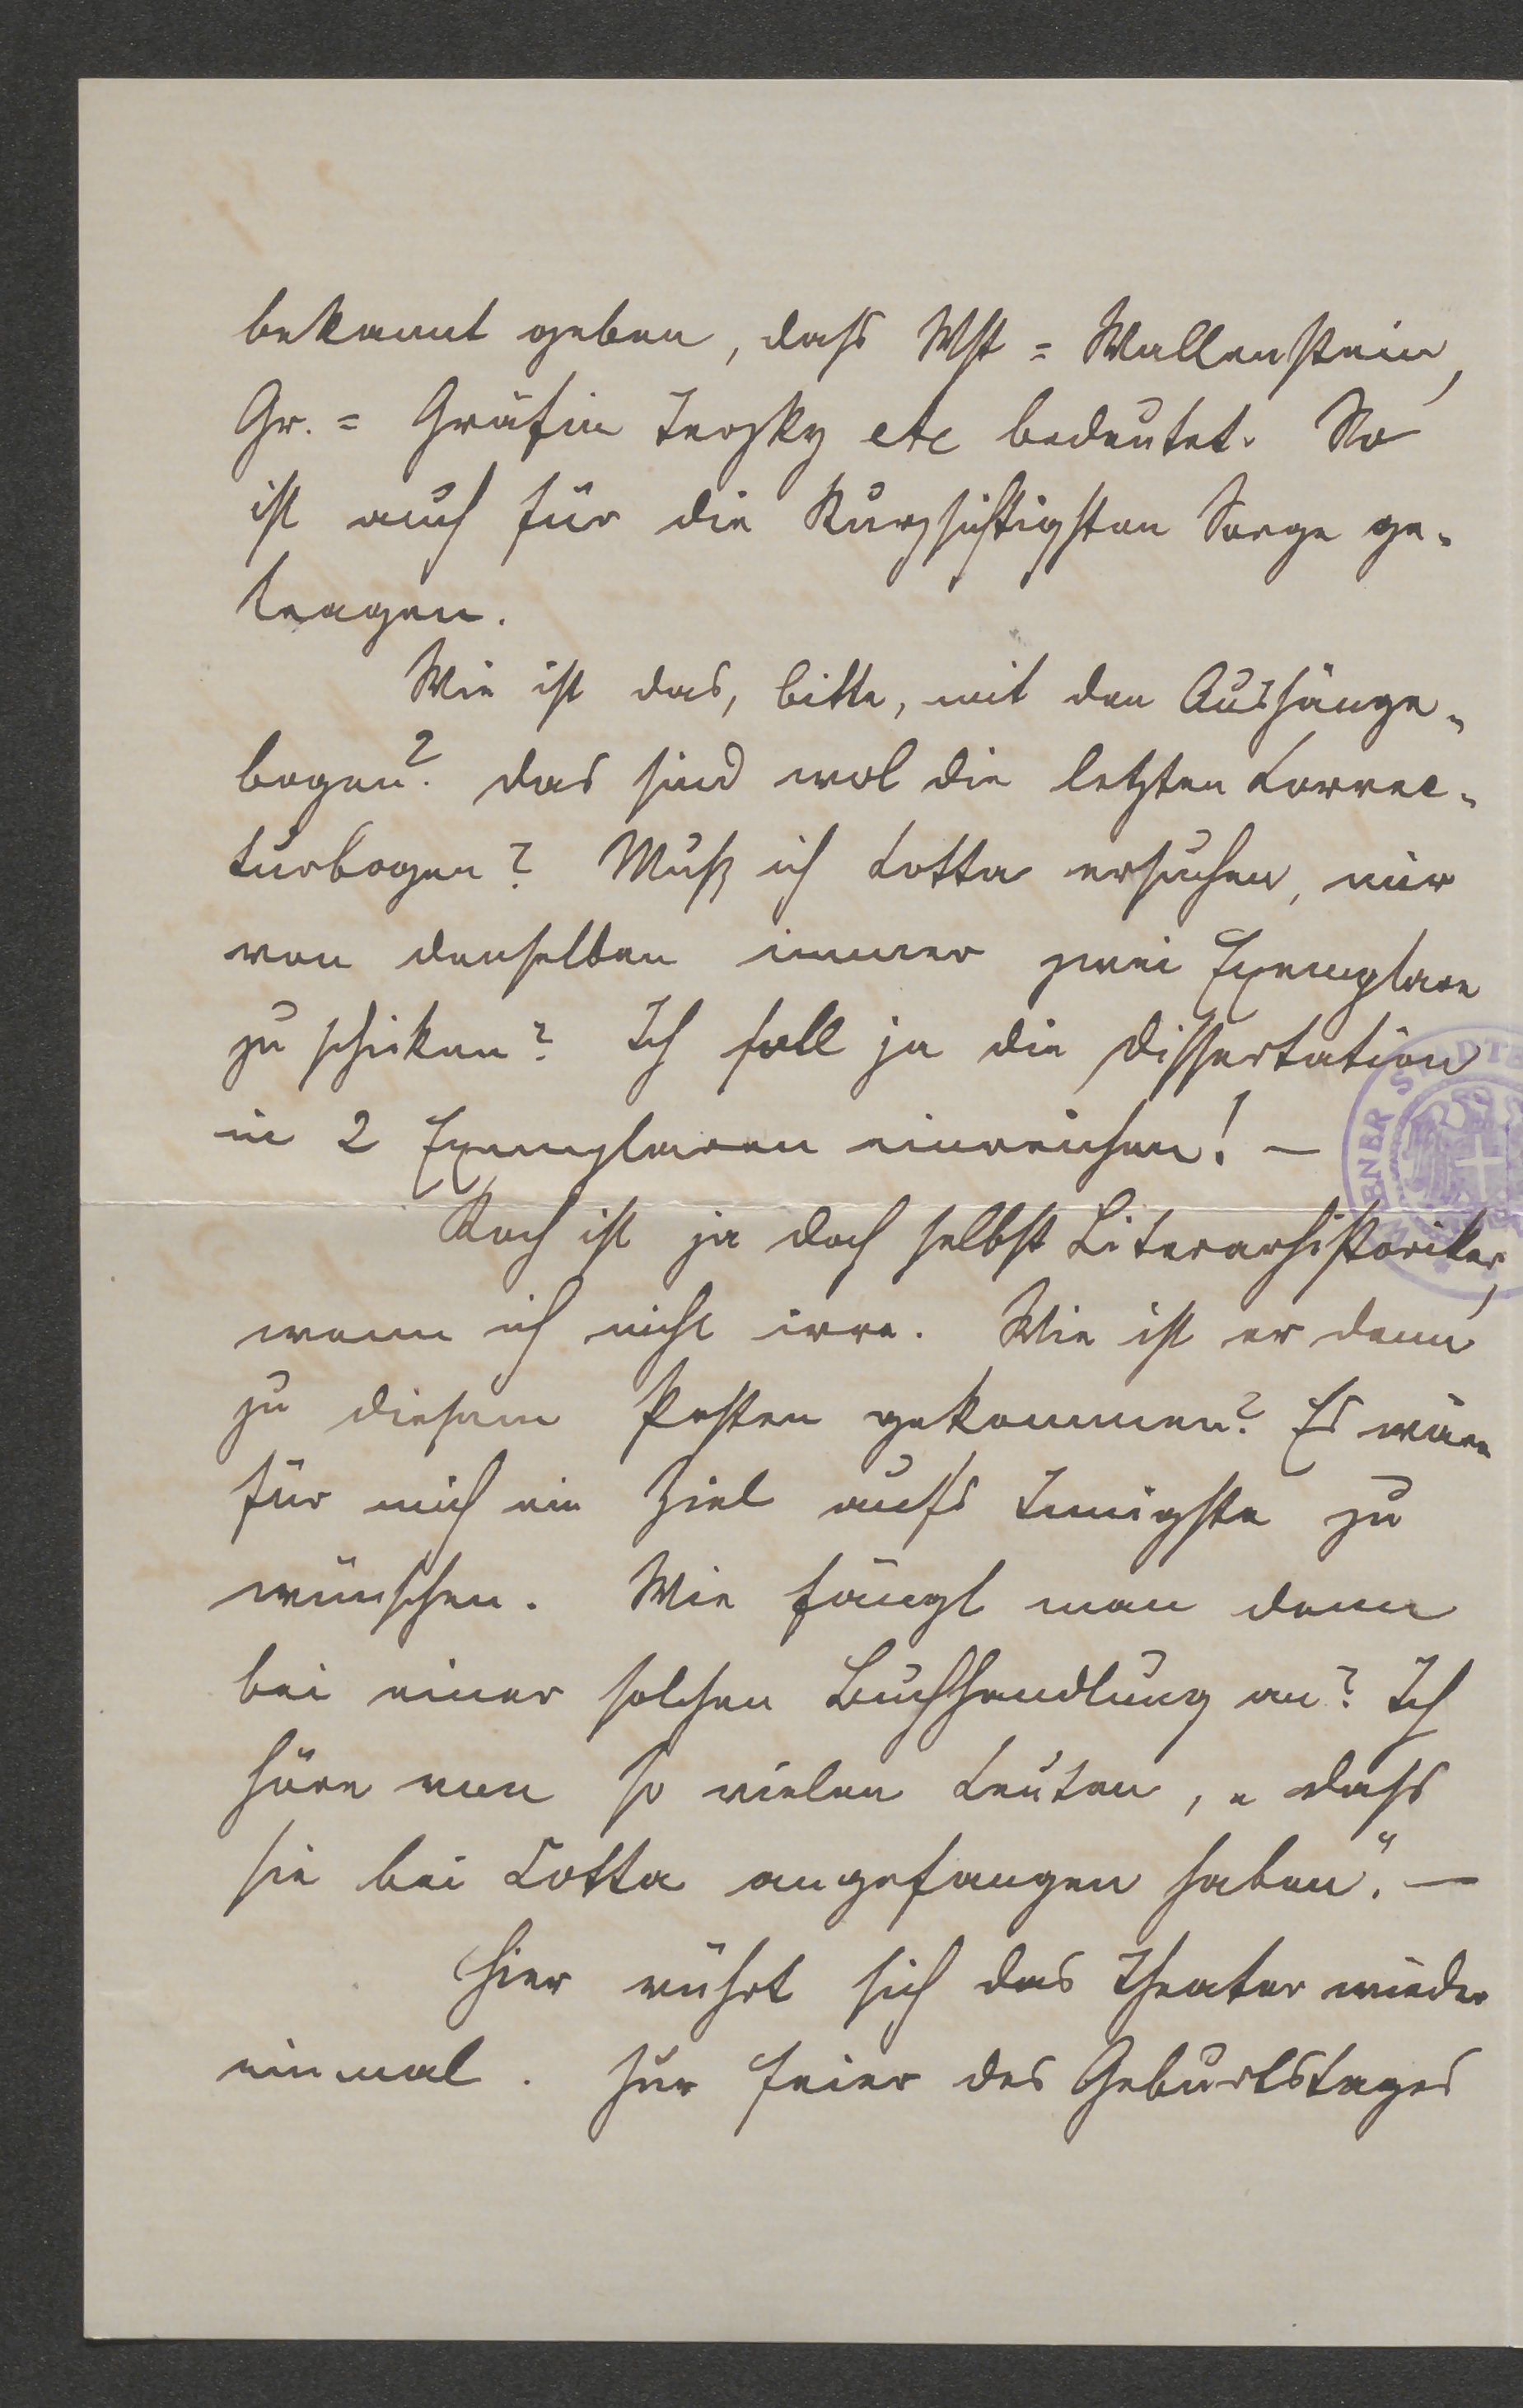 bekannt geben, dass Wst = Wallenstein,
Gr. = Gräfin Terzky etc bedeutet. So
ist auch für die Kurzsichtigsten Sorge ge-
tragen.
Wie ist das, bitte, mit den Aushänge-
bogen? Das sind wol die letzten Correc-
turbogen? Muß ich Cotta ersuchen, mir
von denselben immer zwei Exemplare
zu schicken? Ich soll ja die Dissertation
in 2 Exemplaren einreichen! —
Koch ist ja doch selbst Literarhistoriker,
wenn ich nicht irre. Wie ist er denn
zu diesem Posten gekommen? Es wäre
für mich ein Ziel aufs Innigste zu
wünschen. Wie fängt man denn
bei einer solchen Buchhandlung an? Ich
höre von so vielen Leuten, „dass
sie bei Cotta angefangen haben“. —
Hier rührt sich das Theater wieder
einmal. Zur Feier des Geburtstages